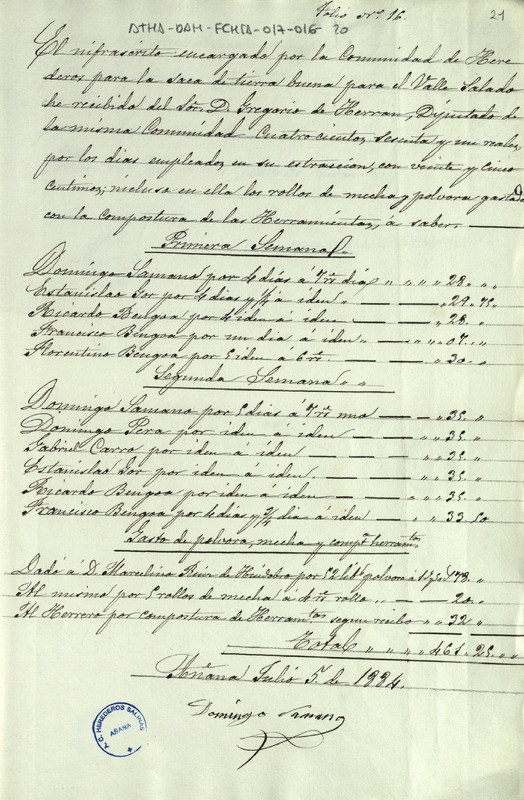 Folio nº 16.
21
ATHA-DAH-FCHSA-017-016 20
El infrascrito encargado por la Comunidad de Here
deros para la saca de tierra buena para el Valle Salado
he recibido del Sor. D. Gregorio de Herran, Diputado de
la misma Comunidad Cuatrocientos, sesenta y un reales,
por los dias empleados en su estraccion, con veinte y cinco
centimos; incluso en ella los rollos de mecha y polvora gastado
con la Compostura de las Herramientas, á saber.
Primera Semana
Domingo Samano por 4 dias á 7 rs dia " " " " 28 " "
Estanislao por 4 dias y 1/4 á iden " 29.75
Ricardo Bengoa por 4 iden á iden " 28. "
Francisco Bengoa por un dia á iden " " 07. "
Florentino Bengoa por 5 iden á 6 rs. " 30. "
Segunda Semana " "
Domingo Samano por 5 dias á 7 rs uno " 35. "
Domingo Pera por iden á iden " " 35. "
Gabriel Carro por iden a iden " " 35. "
Estanislao por iden á iden. " " 35. "
Ricardo Bengoa por iden a iden " " 35. "
Francisco Bengoa por 4 dias y 3/4 dia á iden " " 33.50
Gasto de polvora, mecha y compª herramtas
Dado á D. Marcelino Ruiz de por 52 polvora á 178. "
Al mismo por 5 rollos de mecha á 4 rs rollo " 20. "
Al Herrero por compostura de Herramtas segun recibo " 32 "
Total " " " 461.25. "
Añana Julio 5 de 1884.
Domingo Samano
C. HEREDEROS SALINAS
AÑANA